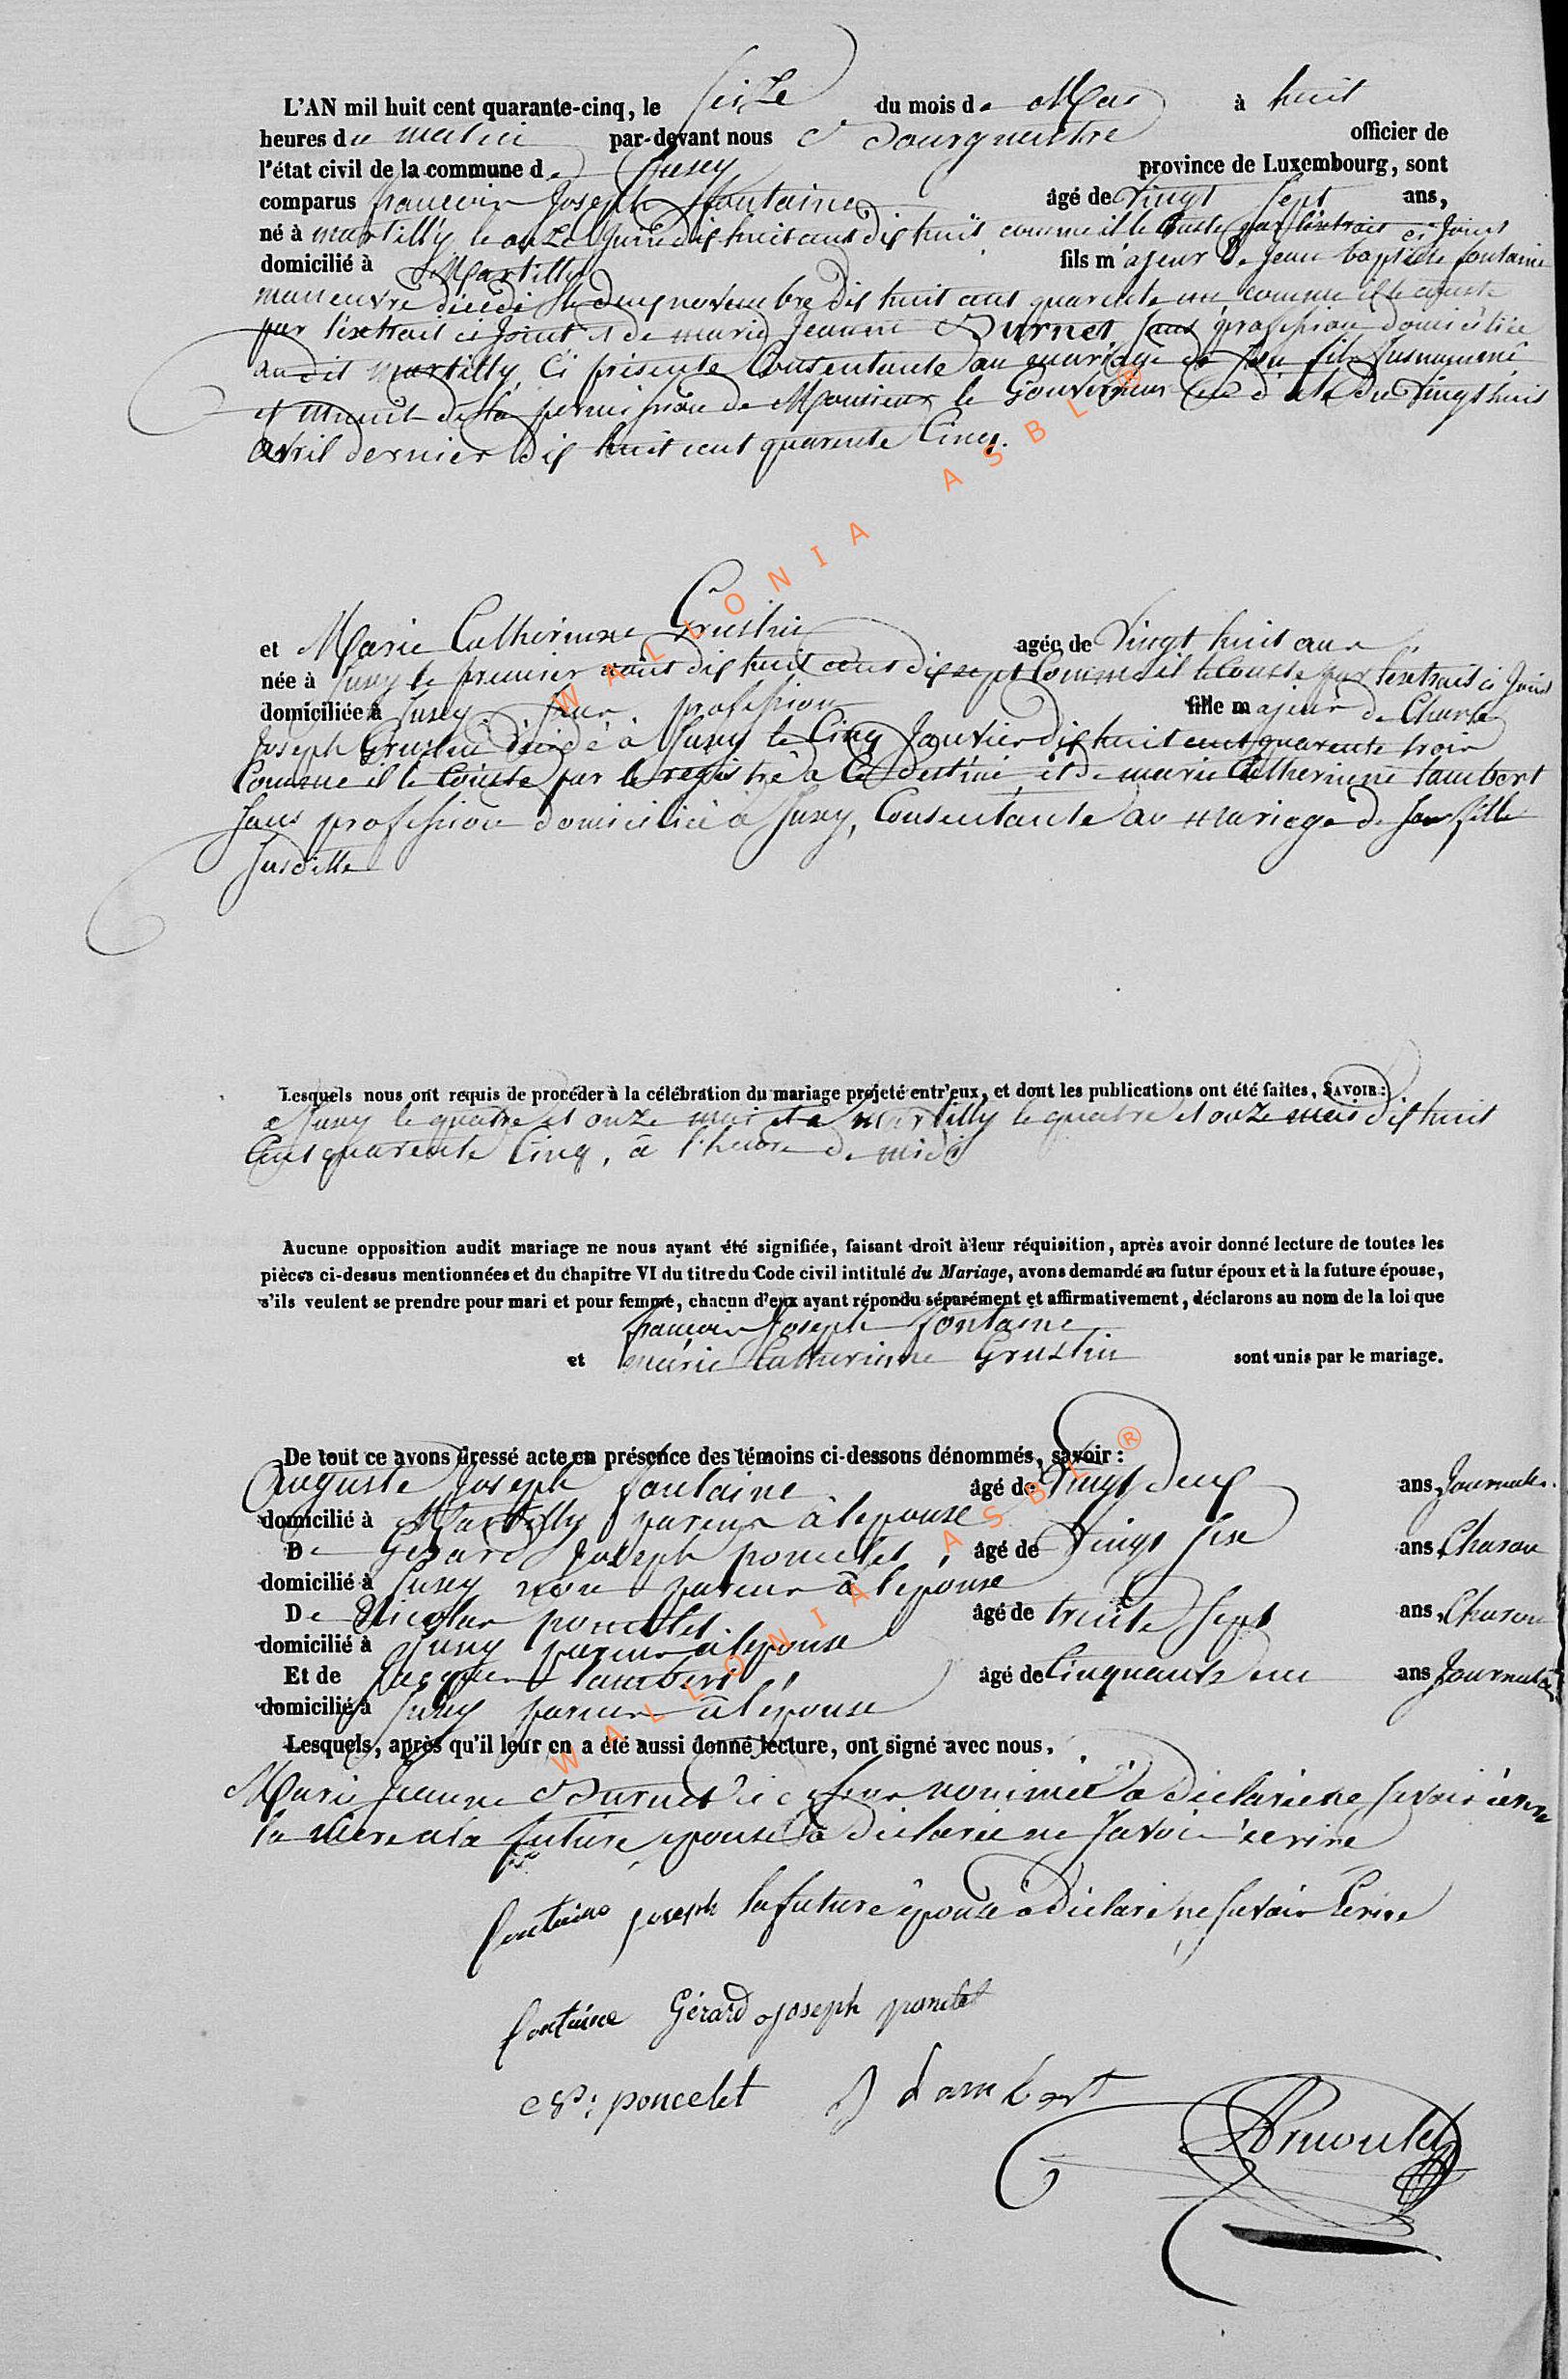 L'AN mil huit cent quarante-cinq, le seize du mois de Mai à huit
heures du matin par-devant nous officier de
l'état civil de la commune de Jusey province de Luxembourg, sont
comparus francois Joseph fontaine âgé de Vingt Sept ans,
né à martilly le onze Juin dix huit cent dix huit comme il le Conste par l'extrait ci Joint
domicilié à Martilly fils majeur De Jean baptiste fontaine
maneuvre décédé le deux novembre dix huit cent quarante un comme il le conste
par l'extrait ci joint et de marie Jeanne Burnet Sans profession domiciliée
au dit martilly Ci présente Consentante au mariage de Son fils Susnommé
et muni de la permission de Monsieur le Gouverneur en date du Vingt huit
avril dernier dix huit cent quarante Cinq.
et Marie Catherinne Grustin agée de Vingt huit ans
née à Jusey le premier août dix huit cent dix sept Comme il le Conste par l'extrait ci Joint
domiciliée à Jusey Sans profession fille majeur de Charle
Joseph Grustin décédé à Jusey le Cinq Janvier dix huit cent quarante trois
Comme il le Conste par le registre à Ce destiné, et de marie Catherinne lambert
Sans profession domiciliée à Jusey, Consentante au mariage de Sa fille
Susditte
Lesquels nous ont requis de procéder à la célébration du mariage projeté entr'eux, et dont les publications ont été faites, SAVOIR:
a Jusey le quatre et onze mai et a martilly le quatre et onze mai dix huit
Cent quarante Cinq, à l'heure de midi
Aucune opposition audit mariage ne nous ayant été signifiée, faisant droit à leur réquisition, après avoir donné lecture de toutes les
pièces ci-dessus mentionnées et du chapitre VI du titre du Code civil intitulé du Mariage, avons demandé au futur époux et à la future épouse,
s'ils veulent se prendre pour mari et pour femme, chacun d'eux ayant répondu séparément et affirmativement, déclarons au nom de la loi que
francois Joseph fontaine
et marie Catherinne Grustin sont unis par le mariage.
De tout ce avons dressé acte en présence des témoins ci-dessous dénommés, savoir :
Auguste Joseph fontaine âgé de Vingt deux ans, Journalier
domicilié à Martilly parens à lepouse
De Gerard Joseph poncelet, âgé de Vingt Six ans, Charon
domicilié à Jusey non parens à lepouse
De Nicolas poncelet âgé de trente Sept ans, Charon
domicilié à Jusey parens à lepouse
Et de Jacques lambert âgé de Cinquante un ans Journalier
domicilié à Jusey parens à l'épouse
Lesquels, après qu'il leur en a été aussi donné lecture, ont signé avec nous.
Marie Jeanne Burnet ci dessus nommée à déclarée ne Savoir écrire
la mere a la future epouse à déclarée ne Savoir écrire
fontaine joseph la future épouse à déclaré ne Savoir Ecrire
fontaine Gérard joseph poncelet
poncelet J Lambert
WALLONIA ASBL ®
WALLONIA ASBL ®